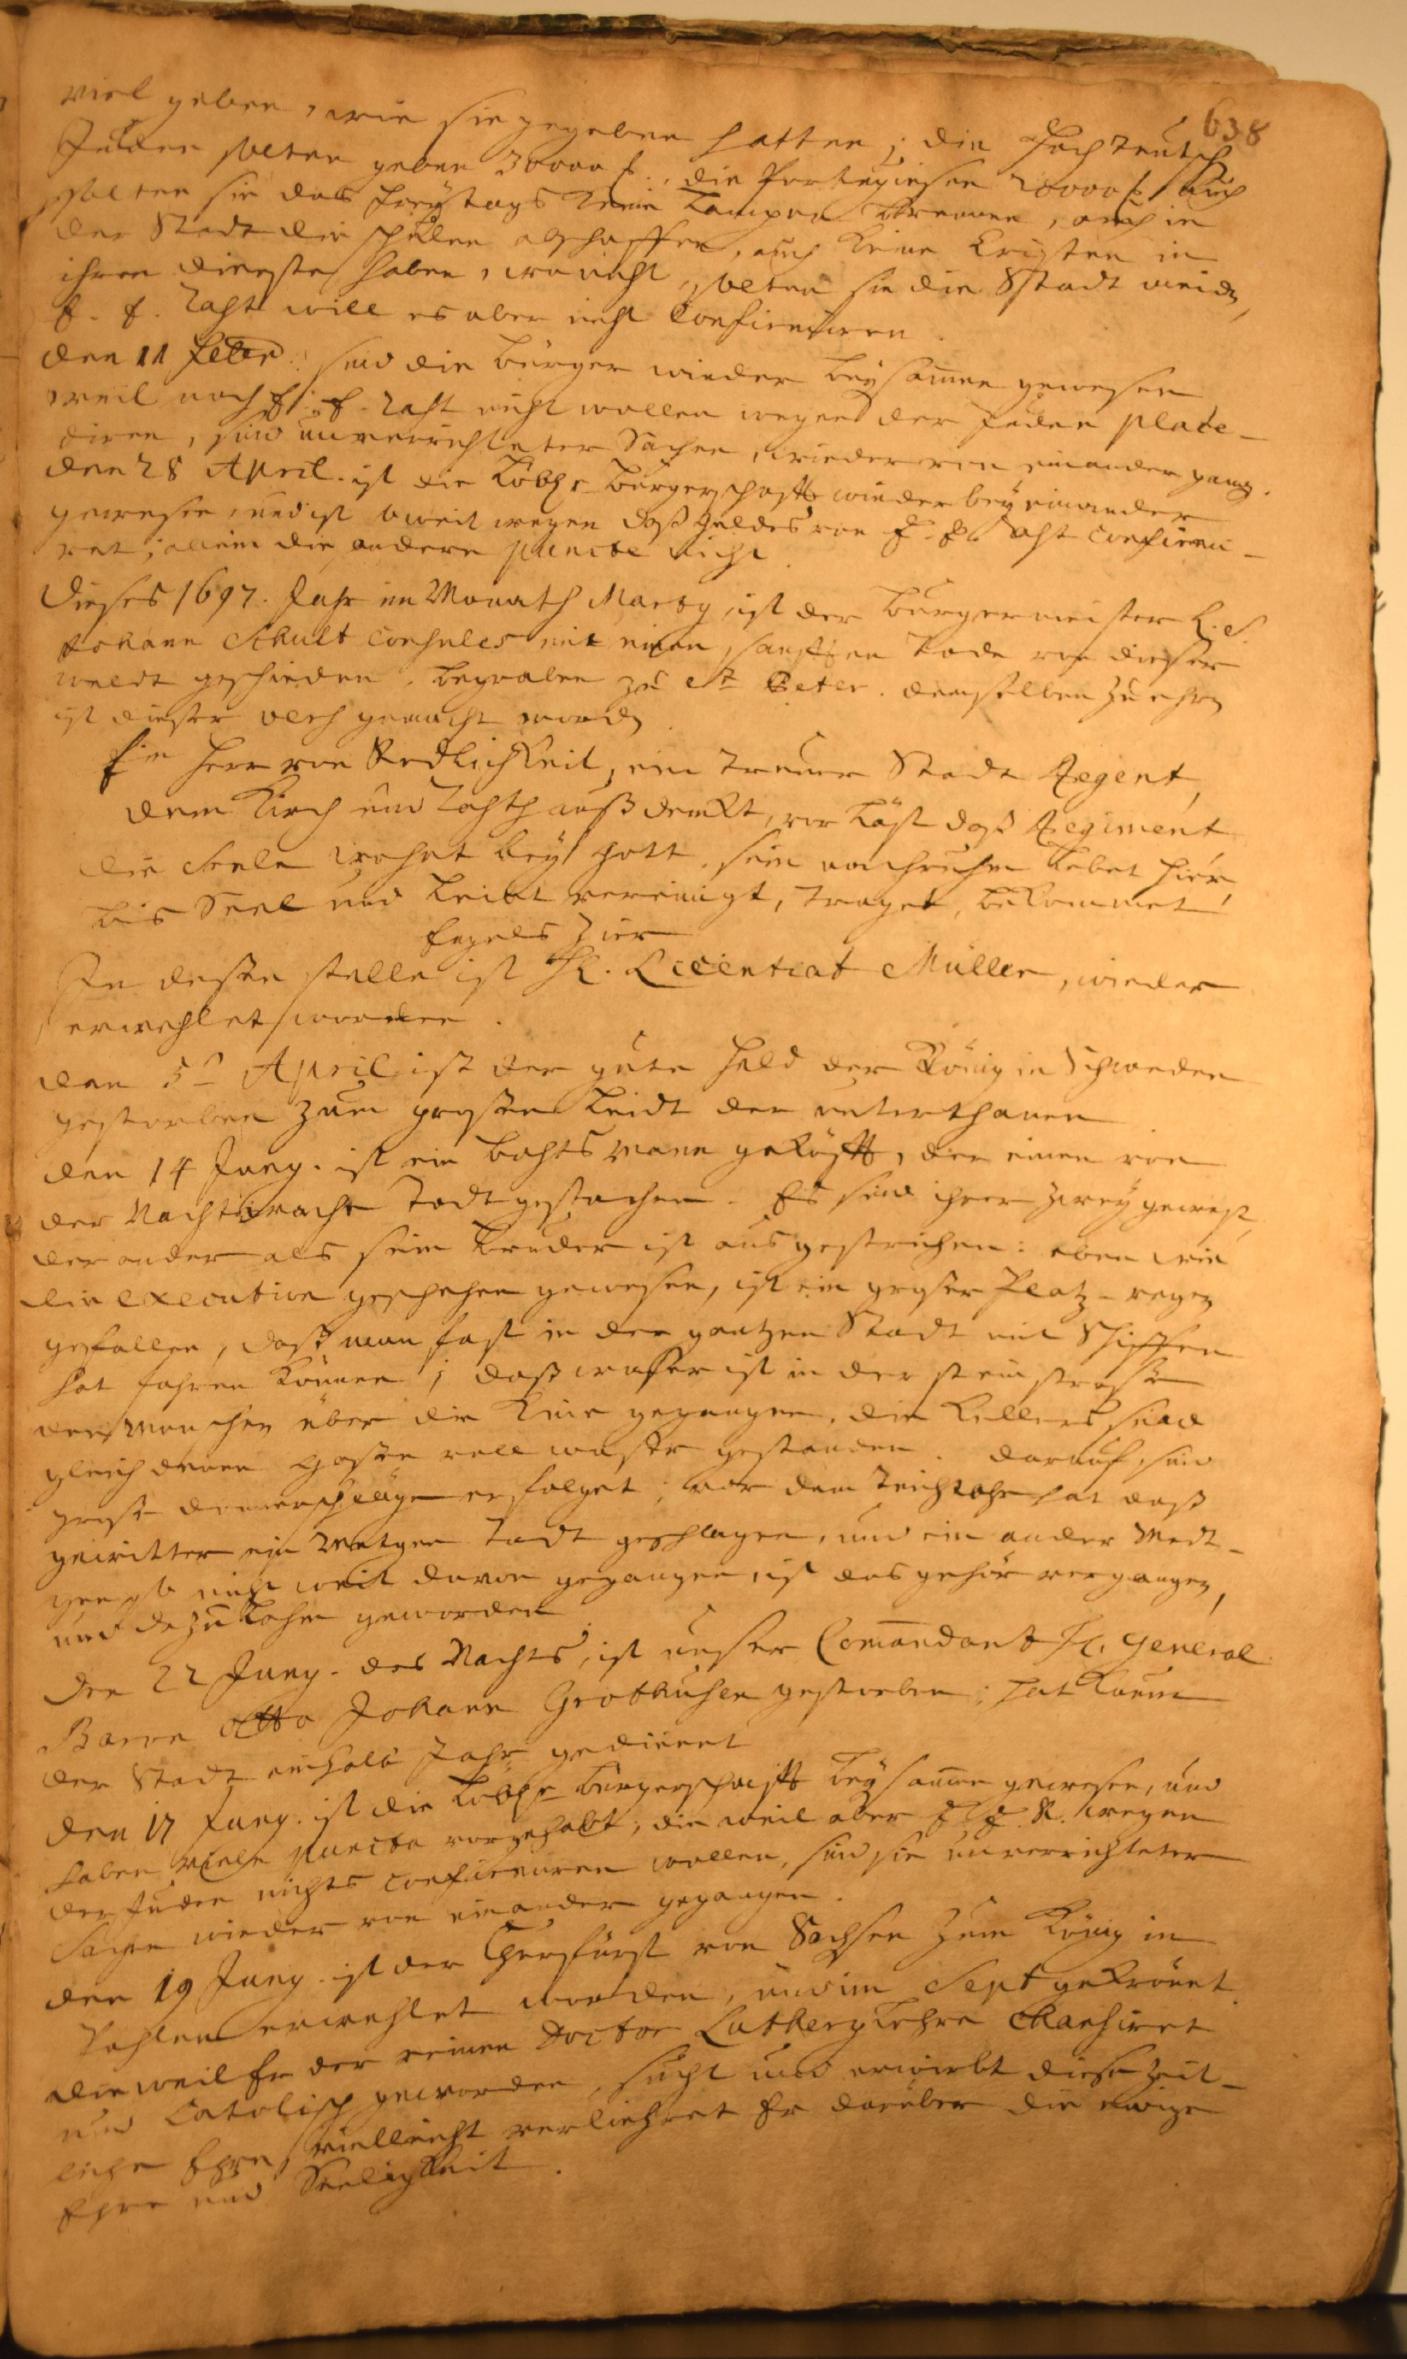 638
viel geben, wie sie gegeben hatten; die Hochteutsch
Juden solten geben 30000 ₰., die Portugiesen 20000 ₰ auch
solten sie das freytags keine Lampen brennen, auch in
der Stadt die schulen abschaffen, auch keine Cristen in
ihren dienste haben, wo nicht, solten sie die Stadt meiden,
E. E. Raht will es aber nicht Confirmiren.
den 11 Febr: sind die bürger wieder beysamen gewesen
weil noch E. E. Raht nicht wollen wegen der Juden place-
diren, sind unverrichteter Sachen, wieder von einander gang.
den 28 April. ist die Löbl. bürgerschafft wieder bey einander
gewesen und ist weit wegen daß geldes von E. E. Raht confirmi-
ret; allein die andern puncte nicht.
Dieses 1697. Jahr im Monath Marty, ist der bürgermeister H. S.
Johann Schult Consules mit einen sanfften Tode von dieser
weldt geschieden, begraben zu St Peter. demselben zu ehren
ist dieser vers gemacht worden
Ein Herr von Redlichkeit, ein treuer Stadt Regent,
dem Kirch und Rahth auß denckt, vor läst daß Regiment
die Seele wohnt bey Gott, sein nachruhm lebet hier,
bis Seel und Leibt vereinigt, traget, bekommet
Engels Zier
In deßen stelle ist H. Licentiat Müller, wieder
erwehlet worden.
den 5ⁿ April ist der gute held der König in Schweden
gestorben zum grossen Leidt der unterthanen
den 14 Juny. ist ein bohtsmann geköpfft, der einen von
der Nachtwacht todt gestochen. Es sind ihrer zwey gewest,
der ander als sein bruder ist ausgestrichen: eben wie
die execution geschehen gewesen, ist ein grosser Platz-regen
gefallen, daß man fast in der gantzen Stadt mit Schiffen
hat fahren können; daß wasser ist in der steinstrasse
den Menschen über die Knie gegangen, die Kellers sind
gleich denen Gossen voll wasser gestanden. darauf sind
grosse donnerschläge erfolget; vor dem Teichtohr hat daß
gewitter ein Metgen todt geschlagen, und ein ander Medt-
gen so nicht weit davon gegangen, ist das gehör vergangen,
und dazu Lahm geworden
den 22 Juny. des Nachts, ist unser Comandant H. General
Baron Otto Johann Grothusen gestorben; hat kaum
der Stadt einhalb Jahr gedienet
den 17 Juny. ist die Löbl. bürgerschafft beysammen gewesen, und
haben viele puncta vorgehabt; die weil aber E. E. R. wegen
der Juden nichts confirmiren wollen, sind sie unverrichteter
Sache wieder von einander gegangen.
den 19 Juny. ist der Churfürst von Sachsen zum König in
Pohlen erwehlet worden, und im Sept gekrönet
die weil Er der reinen Doctor Luthery Lehre
und Catolisch geworden, sucht und erwirbt diese zeit-
liche Ehre, vielleicht verliehret Er darüber die ewige
Ehre und Seeligkeit.